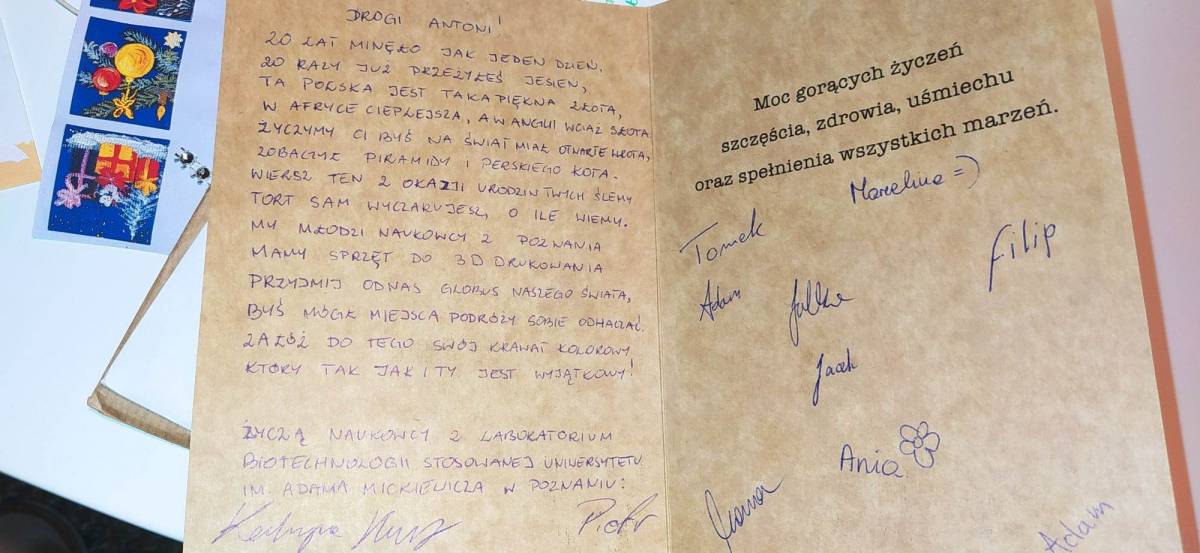 DROGI ANTONI!
20 LAT MINĘŁO JAK JEDEN DZIEŃ.
20 RAZY JUŻ PRZEŻYŁEŚ JESIEŃ,
TA POLSKA JEST TAKA PIĘKNA ZŁOTA,
W AFRYCE CIEPLEJSZA, A W ANGLII WCIĄŻ SŁOTA.
ŻYCZYMY CI BYŚ NA ŚWIAT MIAŁ OTWARTE WROTA,
ZOBACZYŁ PIRAMIDY I PERSKIEGO KOTA.
WIERSZ TEN Z OKAZJI URODZIN TWYCH ŚLEMY
TORT SAM WYCZARUJESZ, O ILE WIEMY.
MY MŁODZI NAUKOWCY Z POZNANIA
MAMY SPRZĘT DO 3D DRUKOWANIA
PRZYJMIJ OD NAS GLOBUS NASZEGO ŚWIATA,
BYŚ MÓGŁ MIEJSCA PODRÓŻY SOBIE ODHACZAĆ.
ZAŁÓŻ DO TEGO SWÓJ KRAWAT KOLOROWY
KTÓRY TAK JAK I TY JEST WYJĄTKOWY!
ŻYCZĄ NAUKOWCY Z LABORATORIUM
BIOTECHNOLOGII STOSOWANEJ UNIWERSYTETU
IM. ADAMA MICKIEWICZA W POZNANIU:
Piotr
Moc gorących życzeń
szczęścia, zdrowia, uśmiechu
oraz spełnienia wszystkich marzeń.
Marcelina =)
Tomek
Filip
Adam
Julka
Jacek
Ania
Adam